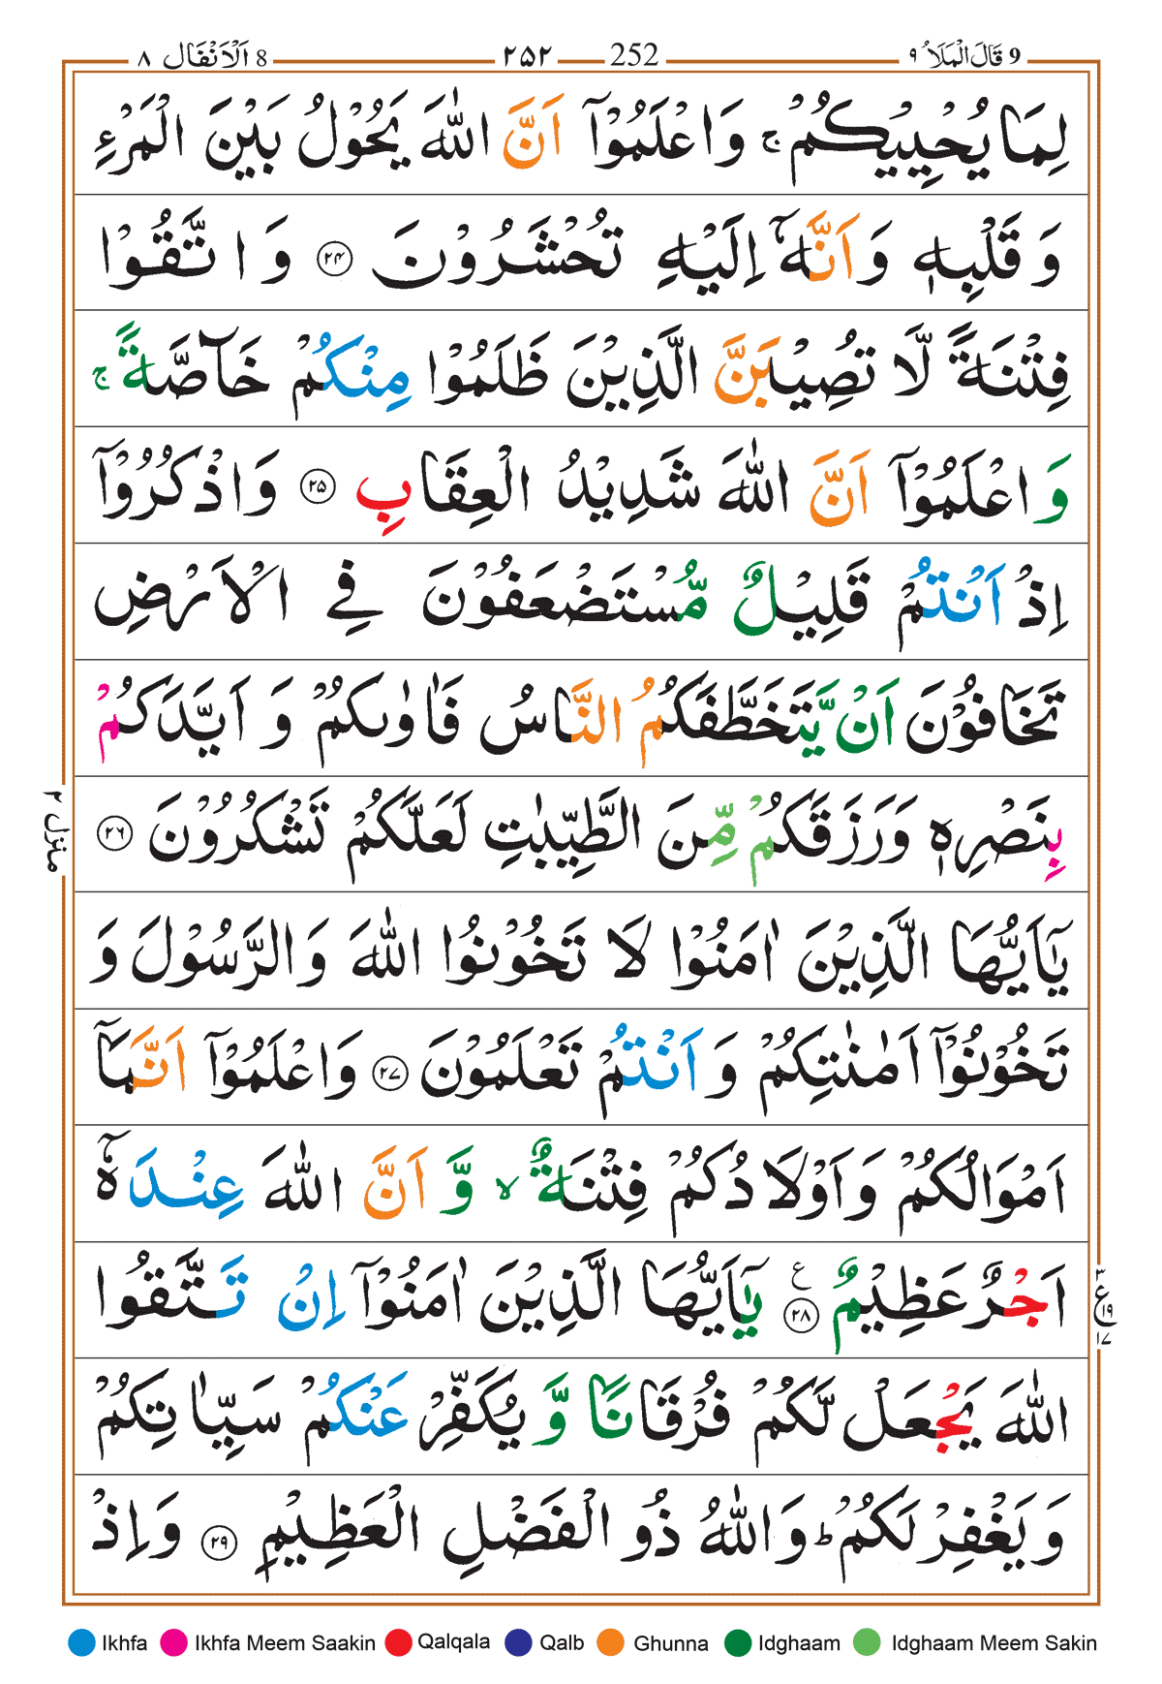 9 قَالَ الْمَلَاُ ٩ 252 ۲۵۲ 8 اَلْاَنْفَال ٨
لِمَا يُحْيِيْكُمْ ۚ وَاعْلَمُوْۤا اَنَّ اللّٰهَ يَحُوْلُ بَيْنَ الْمَرْءِ
وَقَلْبِهٖ وَاَنَّهٗۤ اِلَيْهِ تُحْشَرُوْنَ ﴿۲۴﴾ وَاتَّقُوْا
فِتْنَةً لَّا تُصِيْبَنَّ الَّذِيْنَ ظَلَمُوْا مِنْكُمْ خَآصَّةً ۚ
وَاعْلَمُوْۤا اَنَّ اللّٰهَ شَدِيْدُ الْعِقَابِ ﴿۲۵﴾ وَاذْكُرُوْۤا
اِذْ اَنْتُمْ قَلِيْلٌ مُّسْتَضْعَفُوْنَ فِي الْاَرْضِ
تَخَافُوْنَ اَنْ يَّتَخَطَّفَكُمُ النَّاسُ فَاٰوٰىكُمْ وَاَيَّدَكُمْ
بِنَصْرِهٖ وَرَزَقَكُمْ مِّنَ الطَّيِّبٰتِ لَعَلَّكُمْ تَشْكُرُوْنَ ﴿۲۶﴾
منزل ۲
يٰۤاَيُّهَا الَّذِيْنَ اٰمَنُوْا لَا تَخُوْنُوا اللّٰهَ وَالرَّسُوْلَ وَ
تَخُوْنُوْۤا اَمٰنٰتِكُمْ وَاَنْتُمْ تَعْلَمُوْنَ ﴿۲۷﴾ وَاعْلَمُوْۤا اَنَّمَاۤ
اَمْوَالُكُمْ وَاَوْلَادُكُمْ فِتْنَةٌ ۙ وَّاَنَّ اللّٰهَ عِنْدَهٗۤ
اَجْرٌ عَظِيْمٌ ﴿۲۸﴾ ع يٰۤاَيُّهَا الَّذِيْنَ اٰمَنُوْۤا اِنْ تَتَّقُوا
۳ ع ۱۹ ۱۷
اللّٰهَ يَجْعَلْ لَّكُمْ فُرْقَانًا وَّيُكَفِّرْ عَنْكُمْ سَيِّاٰتِكُمْ
وَيَغْفِرْ لَكُمْ ؕ وَاللّٰهُ ذُو الْفَضْلِ الْعَظِيْمِ ﴿۲۹﴾ وَاِذْ
Ikhfa Ikhfa Meem Saakin Qalqala Qalb Ghunna Idghaam Idghaam Meem Sakin